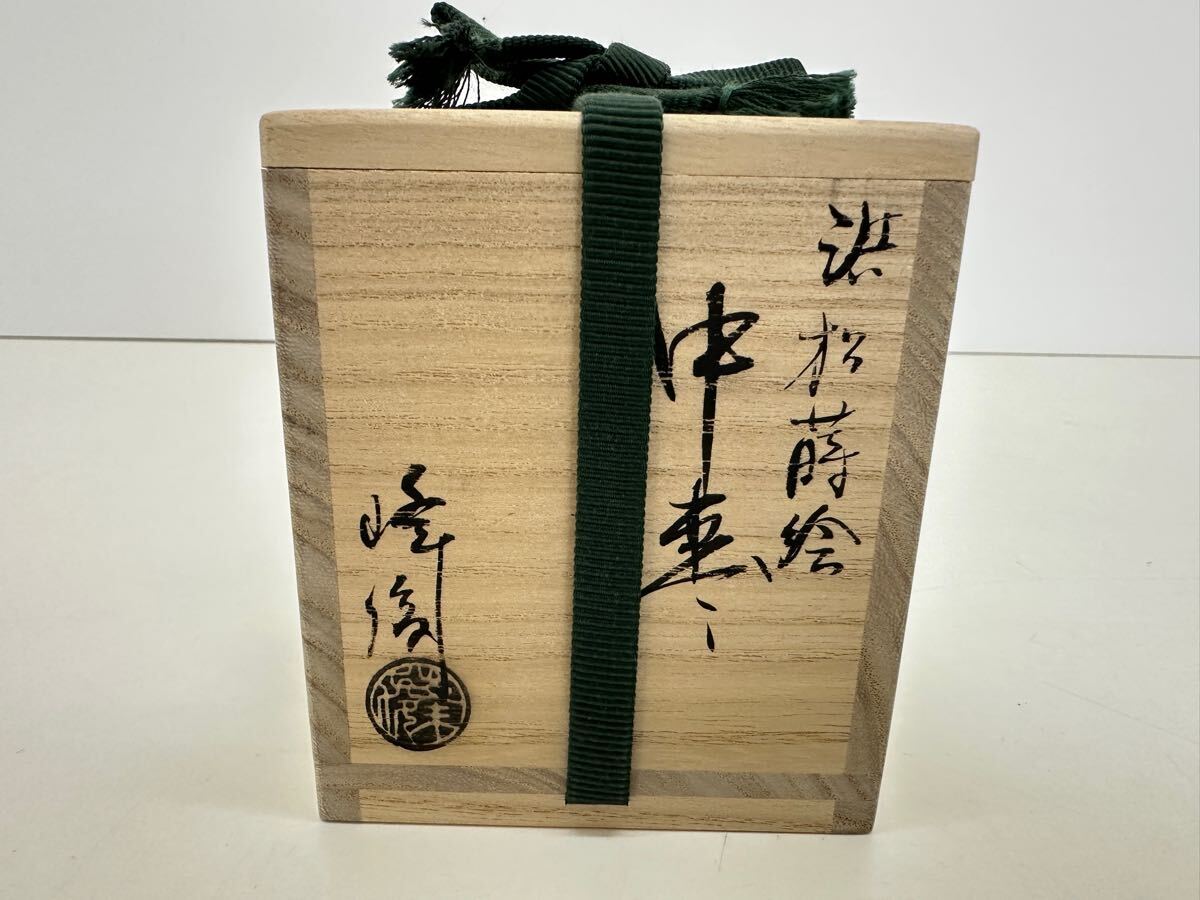 浜松蒔絵
中棗
峰俊